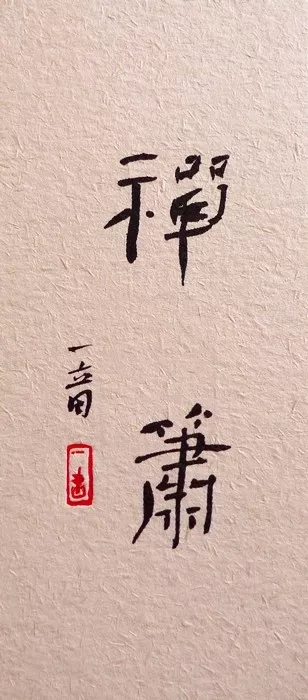 禪簫
一音